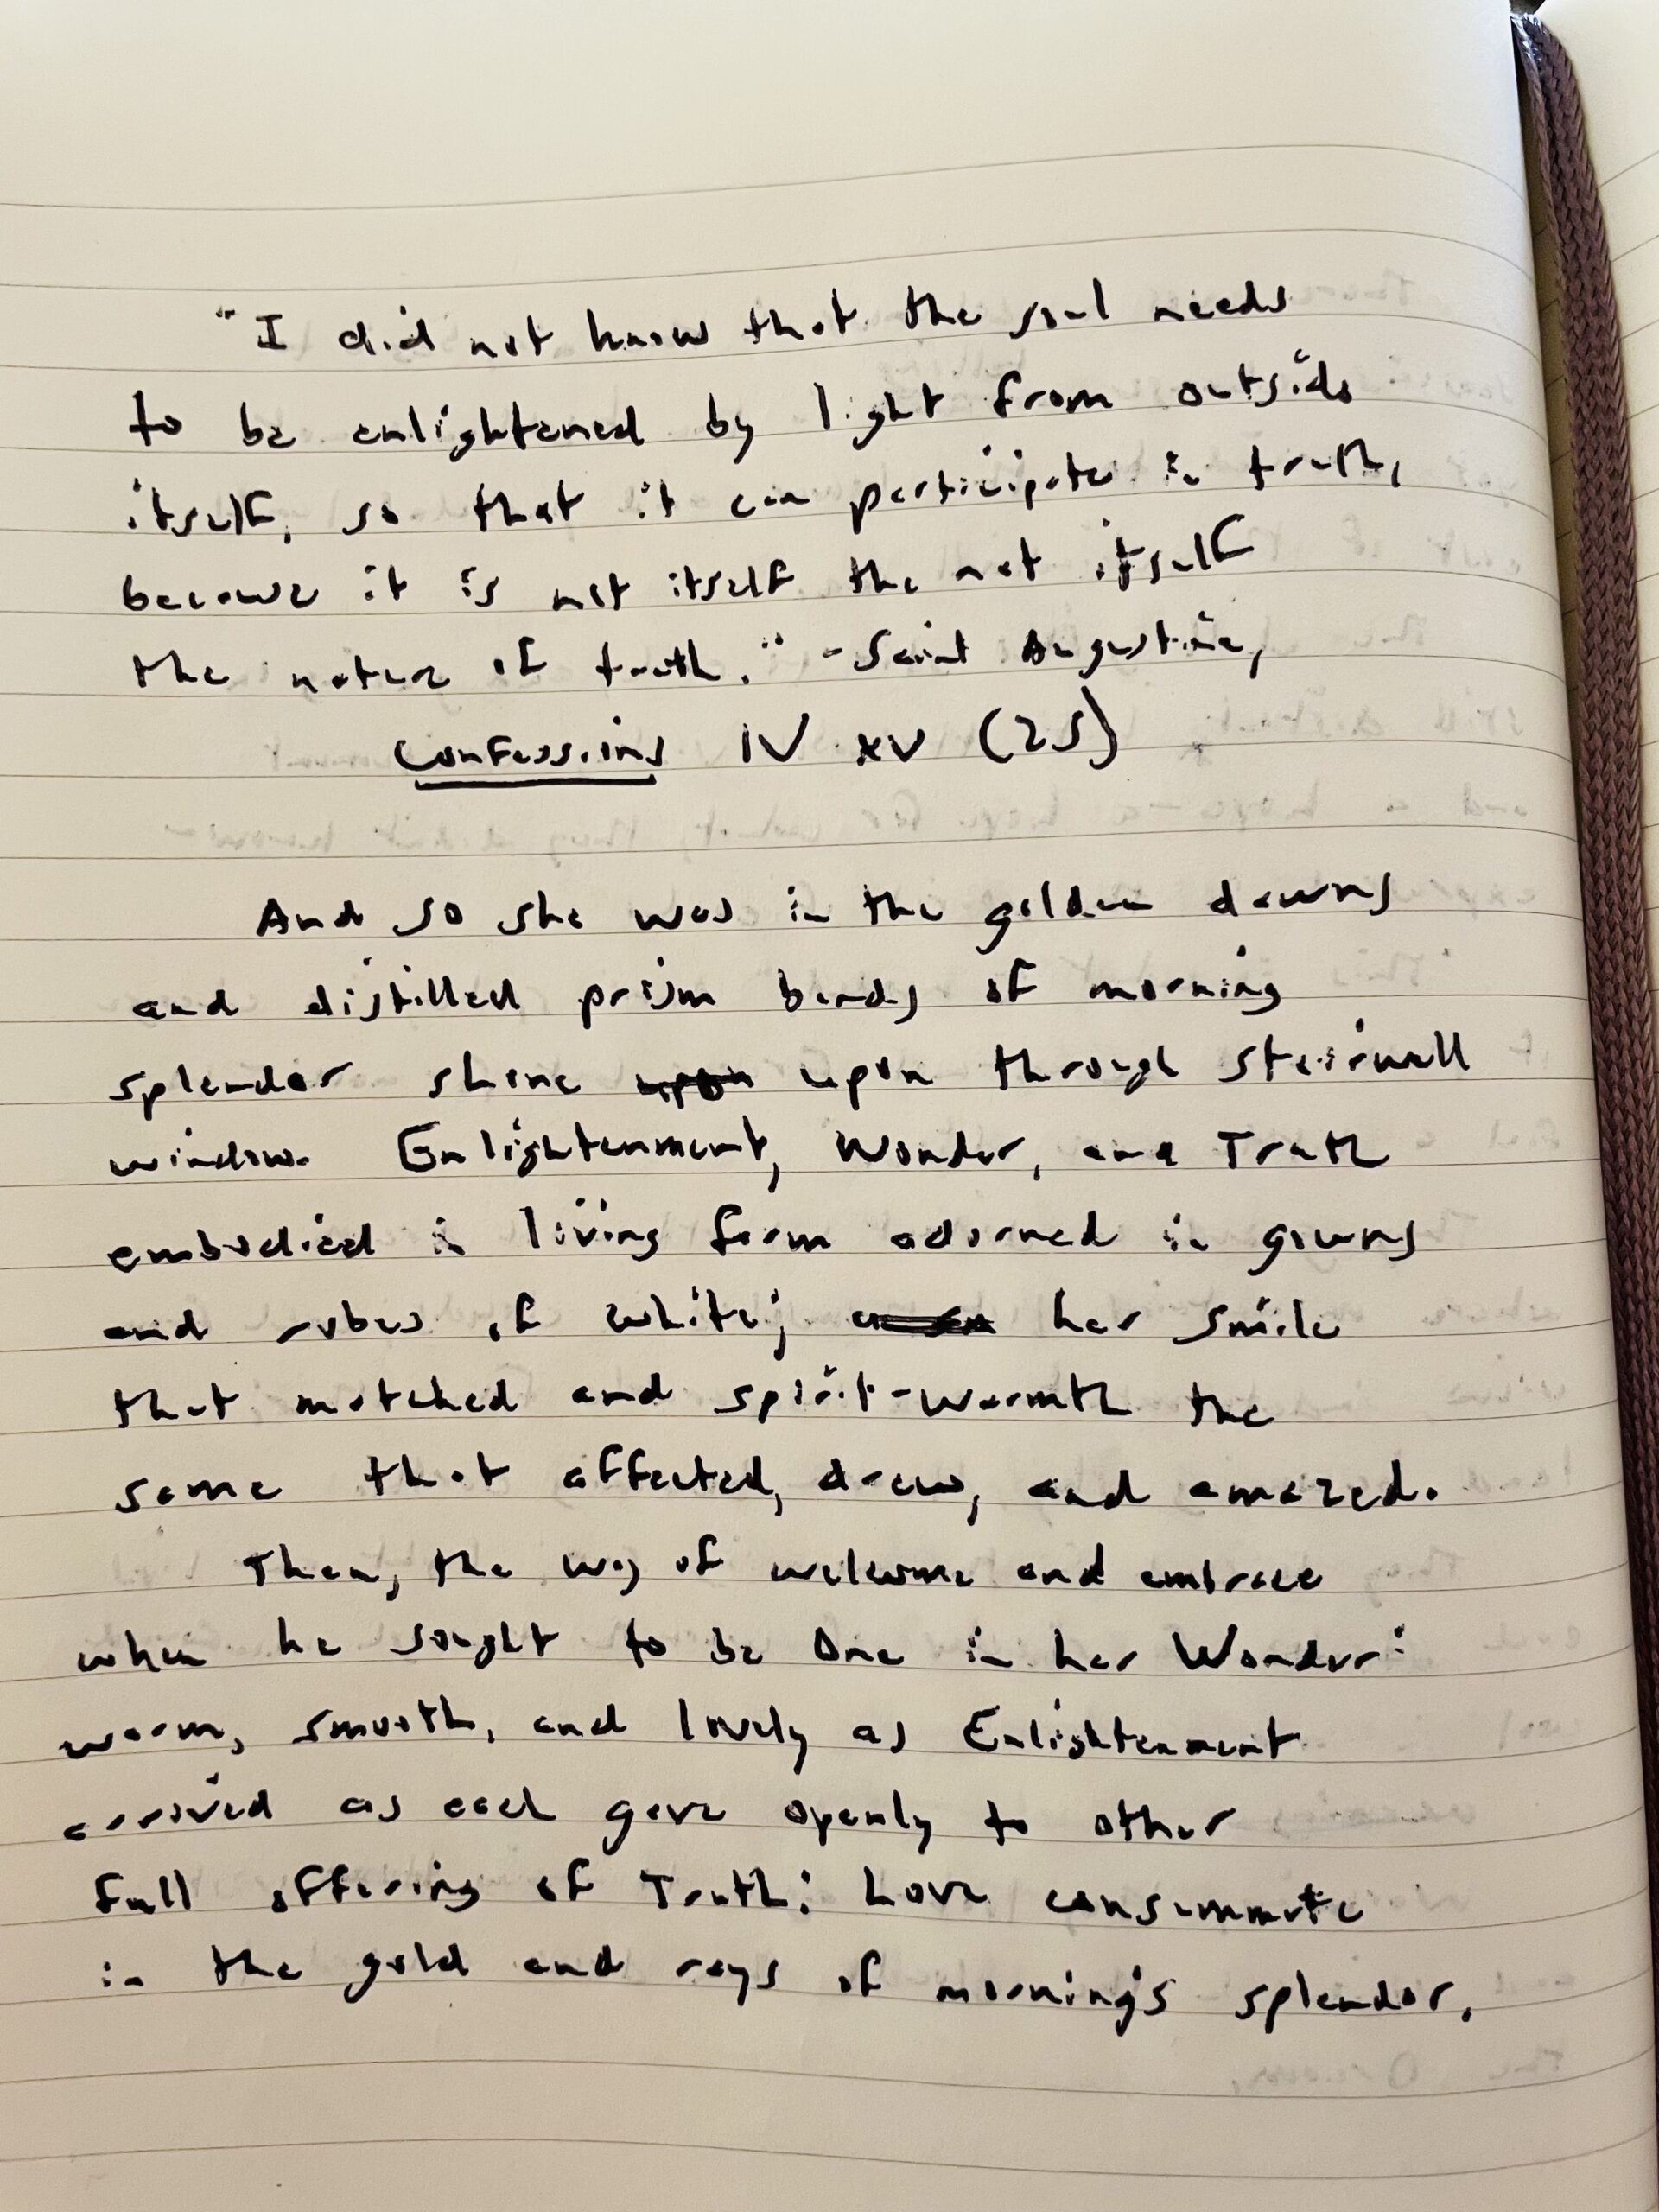 "I did not know that the soul needs
to be enlightened by light from outside
itself, so that it can participate in truth,
because it is not itself the not itself
the nature of truth." - Saint Augustine,
Confessions IV xv (25)
And so she was in the golden dawns
and distilled prism bends of morning
splendor shone upon upon through stairwell
window. Enlightenment, Wonder, and Truth
embodied in living form adorned in gowns
and robes of white; her smile
that matched and spirit-warmth the
same that affected, drew, and amazed.
Then, the way of welcome and embrace
when he sought to be One in her Wonder:
warm, smooth, and lovely as Enlightenment
arrived as each gave openly to other
full offering of Truth: Love consummate
in the gold and rays of morning's splendor.